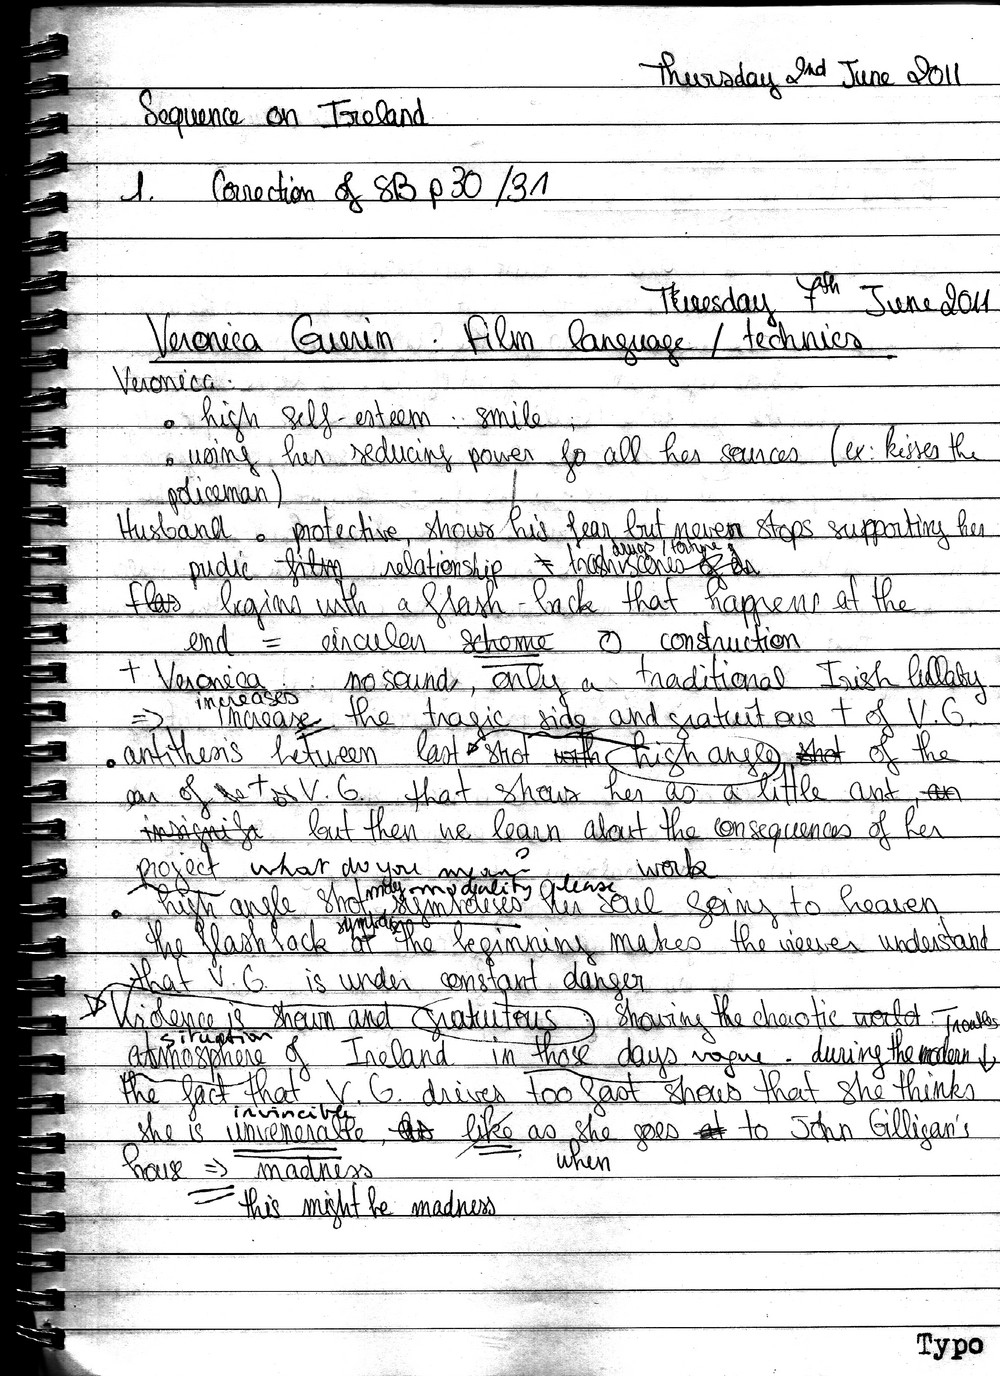 Thursday 2nd June 2011
Sequence on Ireland
1. Correction of SB p 30/31
Tuesday 7th June 2011
Veronica Guerin : Film language / technics
Veronica :
• high self-esteem : smile ;
• using her seducing power to all her sources (ex: kisses the
policeman)
Husband • protective, shows his fear but never stops supporting her
drugs / torture
pudic relationship ≠ scenes
begins with a flash-back that happens at the
end = circular scheme construction
+ Veronica : no sound, only a traditional Irish lullaby
increases
=> increase the tragic side and gratuitous + of V.G.
• antithesis between last shot with high angle shot of the
car of V.G. that shows her as a little ant, an
but then we learn about the consequences of her
project what do you mean? work
modality please
• high angle shot symbolises her soul going to heaven
the flashback at the beginning makes the viewer understand
that V.G. is under constant danger
Violence is shown and gratuitous showing the chaotic world Troubles
situation
atmosphere of Ireland in those days vague . during the modern
the fact that V.G. drives too fast shows that she thinks
invincible
she is unvenerable, as like as she goes at to John Gilligan's
house => madness when
this might be madness
Typo